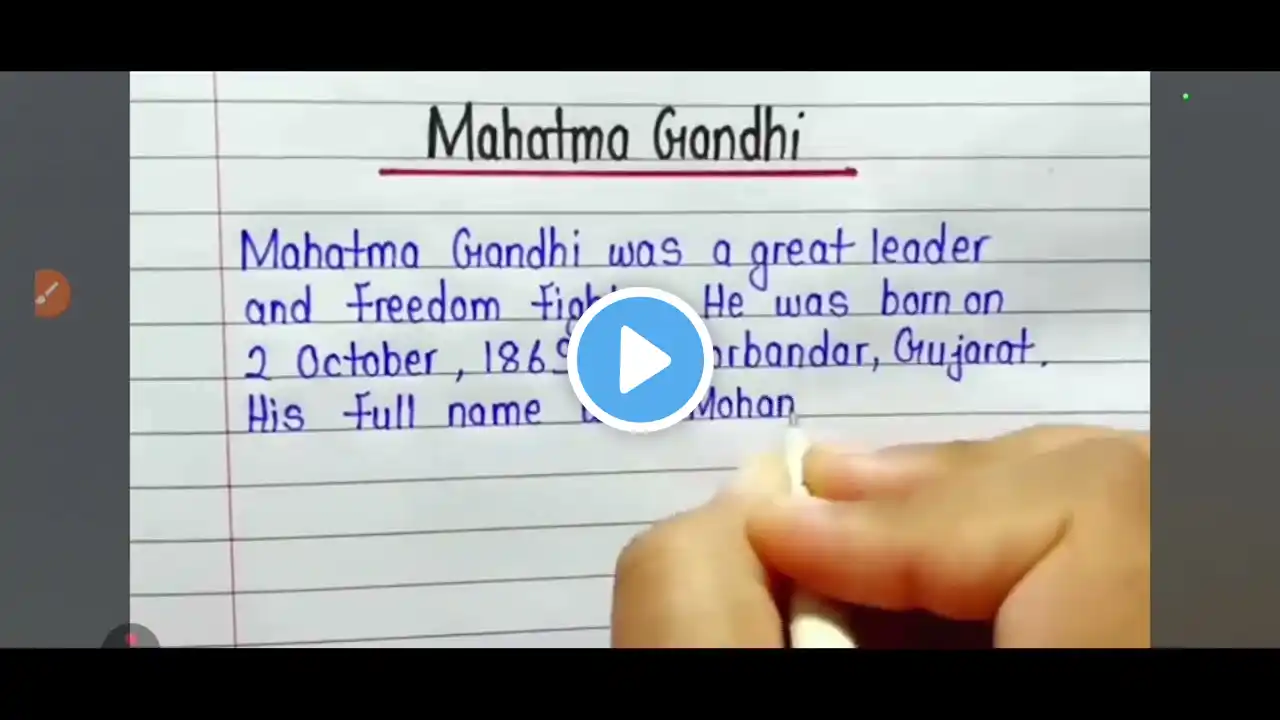 Mahatma Gandhi
Mahatma Gandhi was a great leader
and freedom He was born on
2 October, 1869 Gujarat.
His full name Mohan